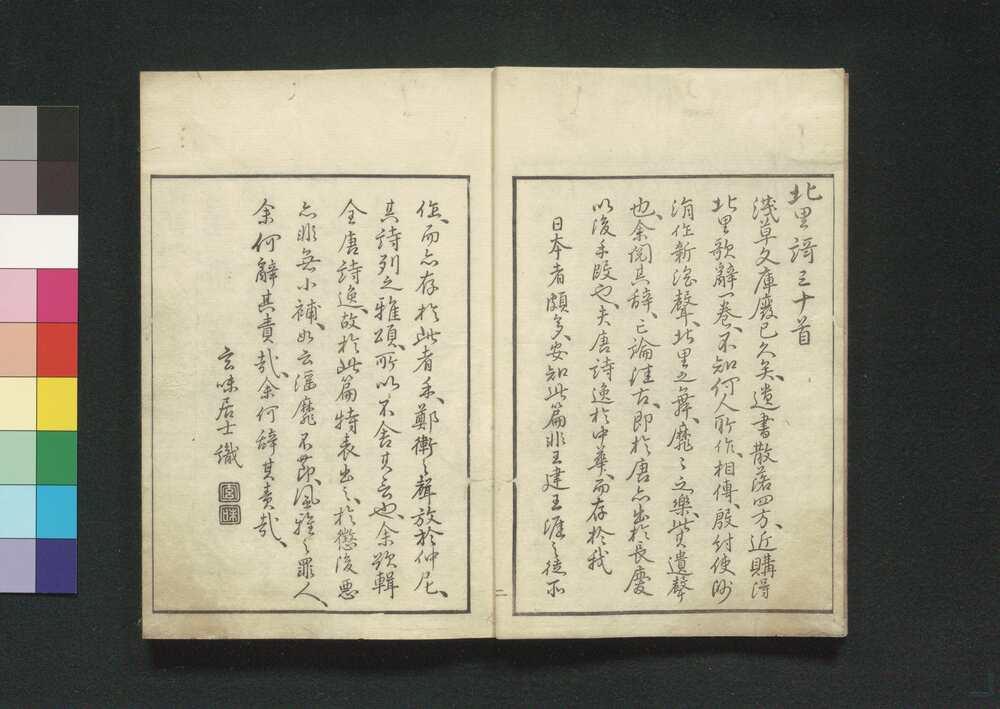 北里謌三十首
淺草文庫廢已久矣、遺書散落四方、近購得
北里歌辭一卷、不知何人所作、相傳、殷紂使師
涓作新淫聲、北里之舞、靡〻之樂、此其遺聲
也、余閲其辞、亡論往古、即於唐亦出於長慶
以後手段也、夫唐詩逸於中華、而存於我
日本者頗多、安知此篇非王建王涯之徒所
作、而亦存於此者乎、鄭衛之聲放於仲尼、
其詩列之雅頌、所以不舍其言也、余欲輯
全唐詩逸、故於此篇特表出之、於懲後惡
亦非無小補、如云淫靡不節、風雅之罪人、
余何辭其責哉、余何辞其責哉、
玄味居士識
玄味
二